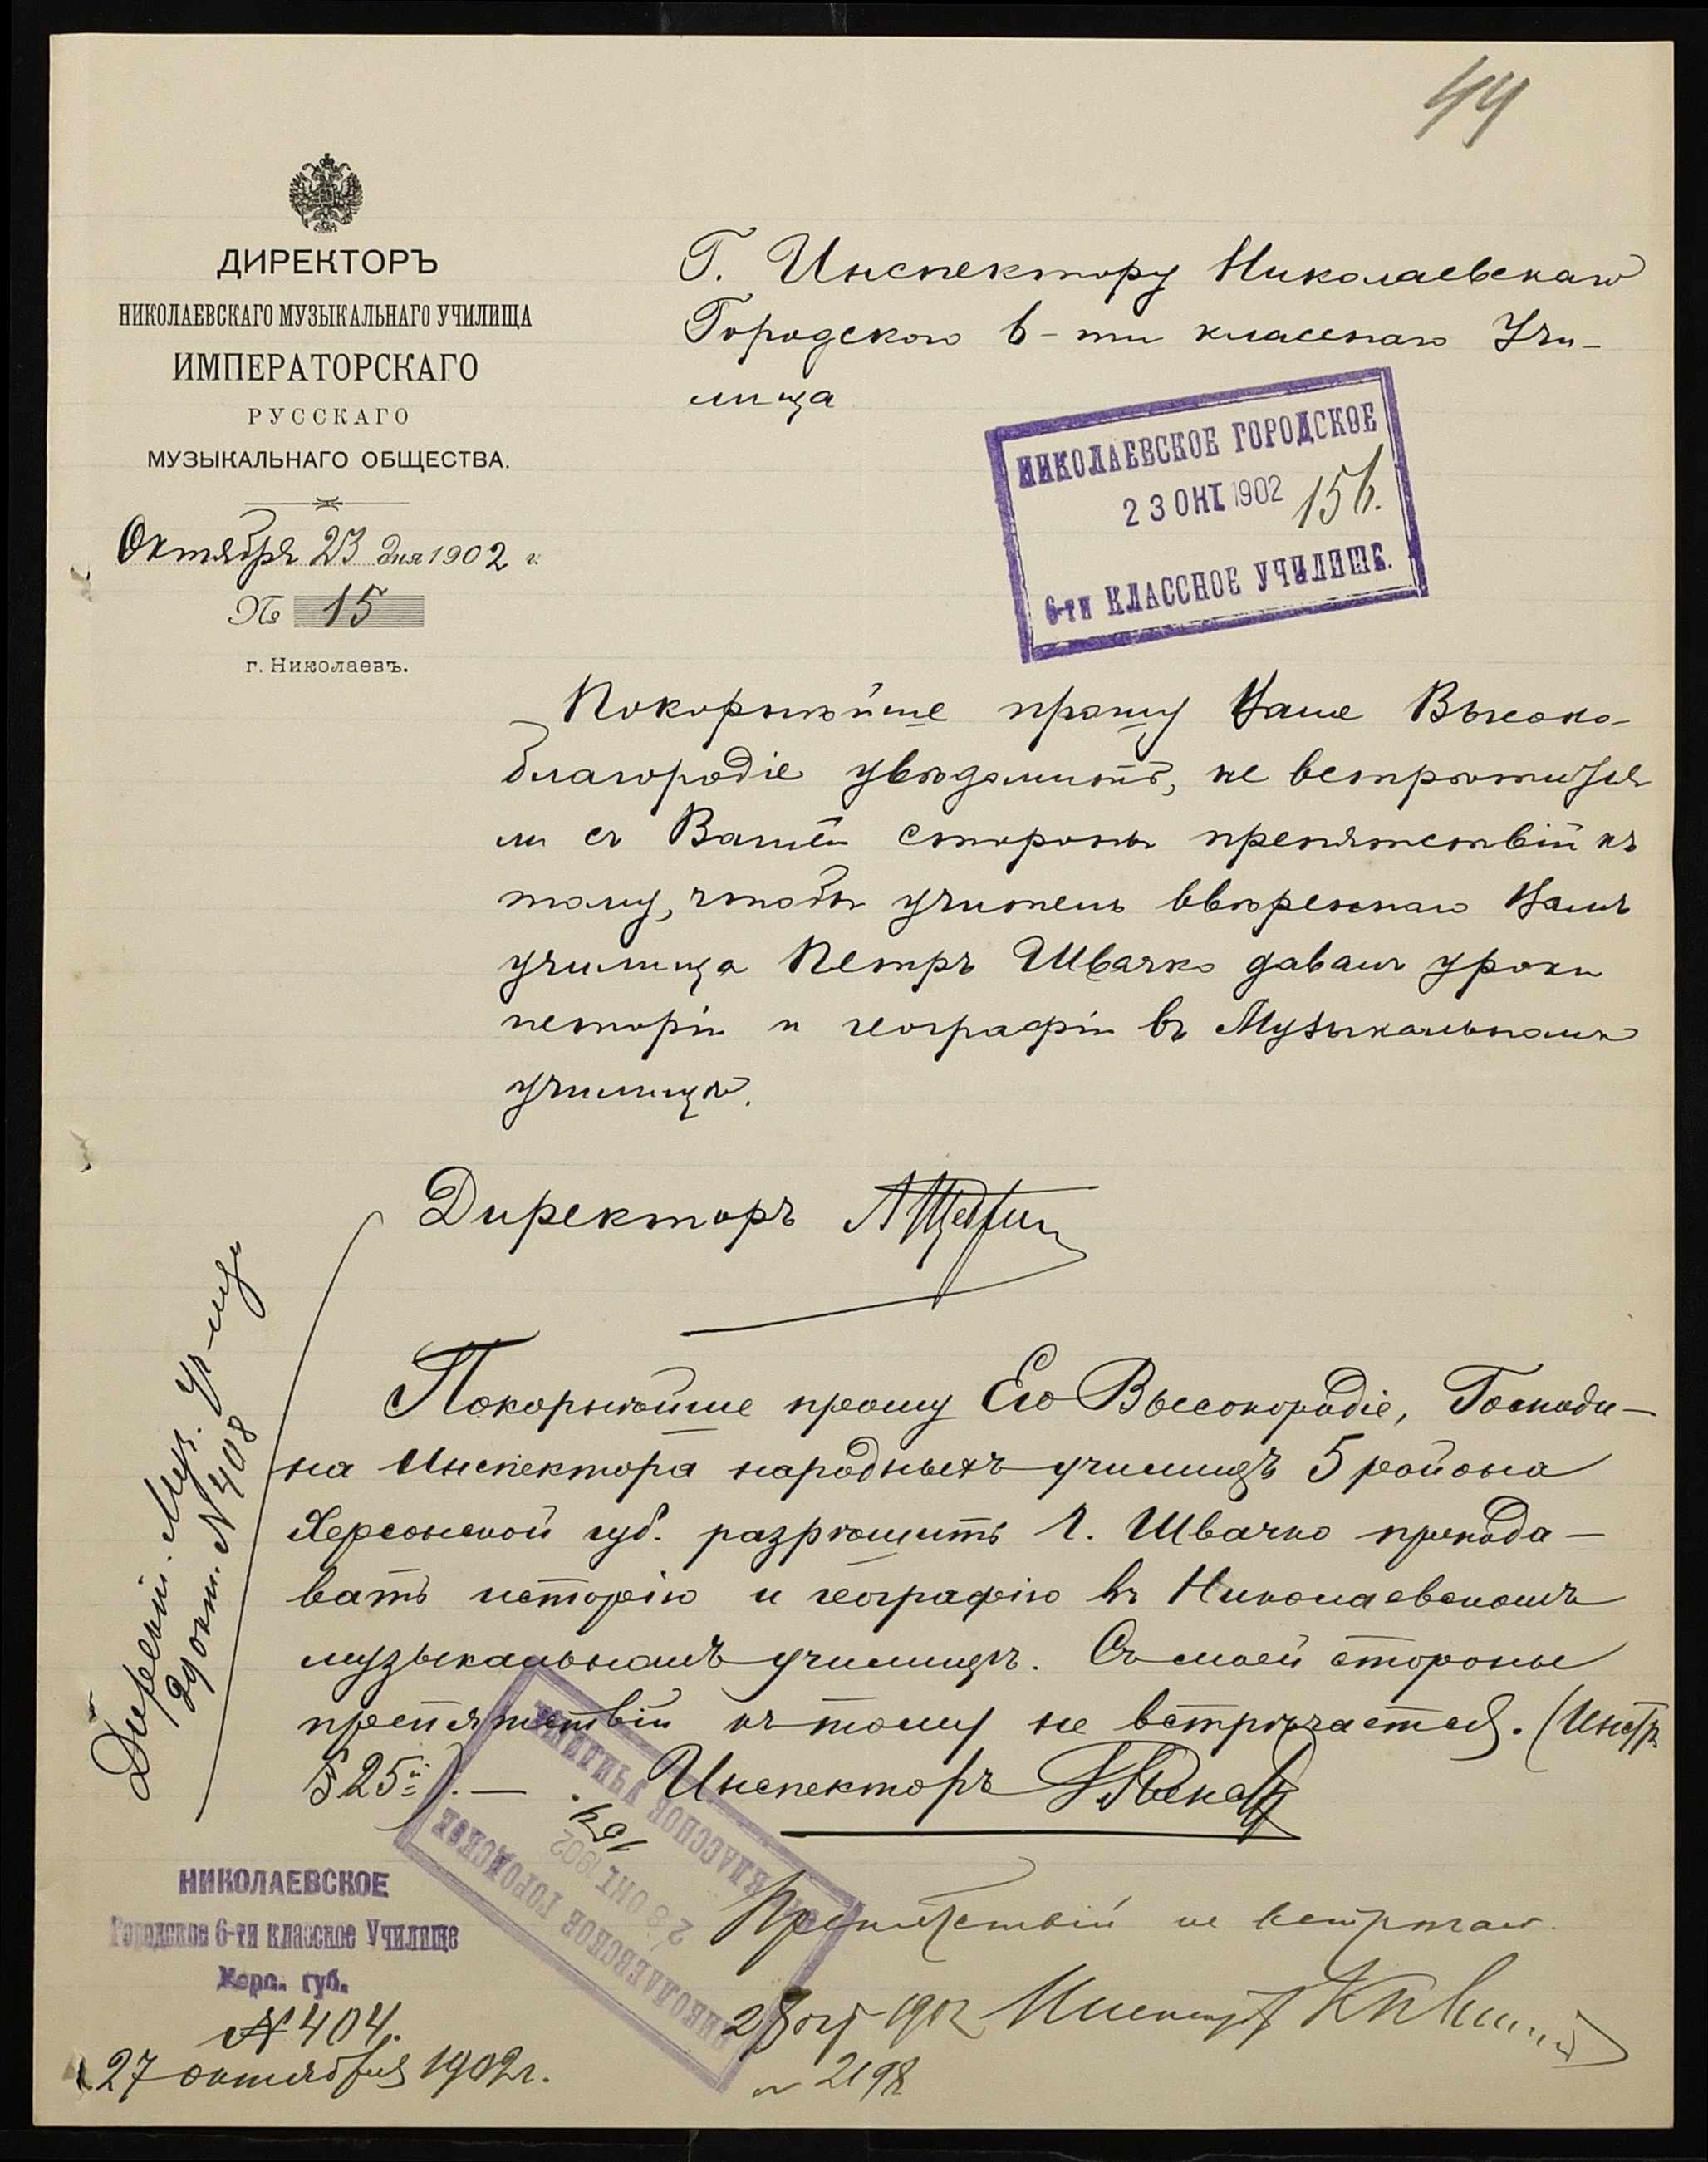 44
ДИРЕКТОРЪ
НИКОЛАЕВСКАГО МУЗЫКАЛЬНАГО УЧИЛИЩА
ИМПЕРАТОРСКАГО
РУССКАГО
МУЗЫКАЛЬНАГО ОБЩЕСТВА.
Октября 23 дня 1902 г.
№ 15
г. Николаевъ.
Г. Инспектору Николаевскаго
Городского 6-ти класснаго Учи-
лища
НИКОЛАЕВСКОЕ ГОРОДСКОЕ
23 ОКТ 1902 156.
6-ти КЛАССНОЕ УЧИЛИЩЕ.
Покорнѣйше прошу Ваше Высоко-
благородіе увѣдомить, не встрѣтится
ли съ Вашей стороны препятствій къ
тому, чтобы учитель ввѣреннаго Вамъ
училища Петръ Швачко давалъ уроки
исторіи и географіи въ Музыкальномъ
училищѣ.
Директоръ
Покорнѣйше прошу Его Высокородіе, Господи-
на Инспектора народныхъ училищъ 5 района
Херсонской губ. разрѣшить г. Швачко препода-
вать исторію и географію въ Николаевскомъ
музыкальномъ училищѣ. Съ моей стороны
препятствій къ тому не встрѣчается. (Инстр.
§ 25й). — Инспекторъ
Директ. Муз. Уч-ща
29 окт. № 408
НИКОЛАЕВСКОЕ ГОРОДСКОЕ
28 ОКТ 1902 157.
КЛАССНОЕ УЧИЛИЩЕ
НИКОЛАЕВСКОЕ
Городское 6-ти классное Училище
Херс. губ.
№ 404.
27 октября 1902 г.
Препятствій не встрѣчаю.
28 окт 1902 Инспекторъ
№ 2198